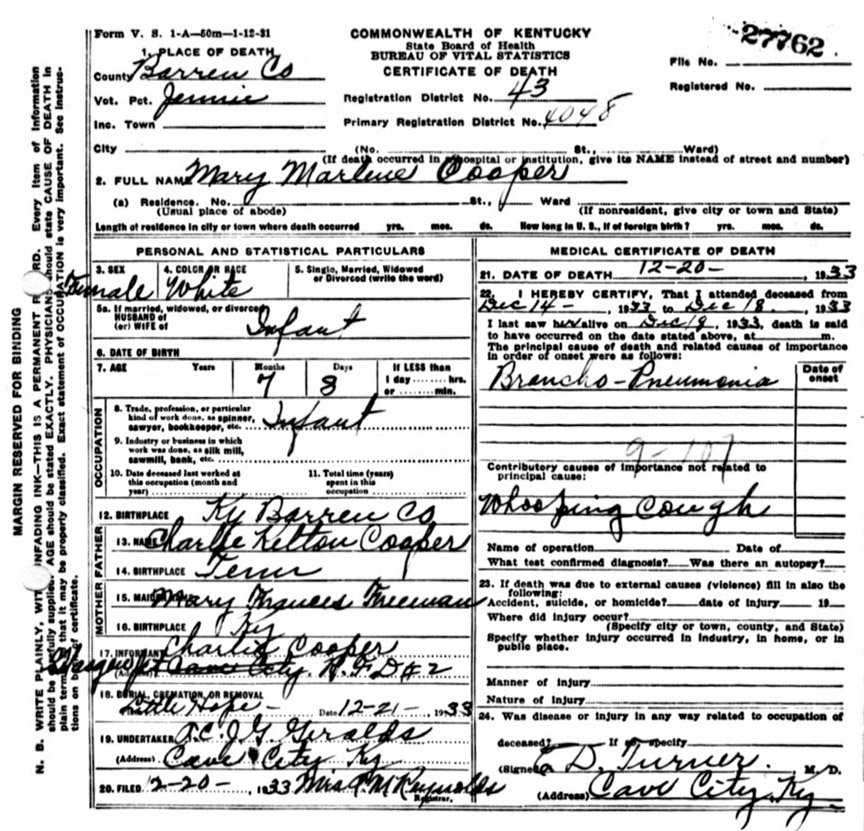 Form V. S. 1-A—50m—1-12-31
COMMONWEALTH OF KENTUCKY
State Board of Health
BUREAU OF VITAL STATISTICS
CERTIFICATE OF DEATH
27762
File No.
Registered No.
1. PLACE OF DEATH
County Barren Co
Vot. Pct. Jennie
Inc. Town
City
Registration District No. 43
Primary Registration District No. 4048
(No. St., Ward)
(If death occurred in hospital or institution, give its NAME instead of street and number)
2. FULL NAME Mary Marlene Cooper
(a) Residence. No. St., Ward
(Usual place of abode) (If nonresident, give city or town and State)
Length of residence in city or town where death occurred yrs. mos. ds. How long in U. S., if of foreign birth? yrs. mos. ds.
PERSONAL AND STATISTICAL PARTICULARS
3. SEX 4. COLOR OR RACE 5. Single, Married, Widowed
or Divorced (write the word)
Female White
5a. If married, widowed, or divorced
HUSBAND of
(or) WIFE of Infant
6. DATE OF BIRTH
7. AGE Years Months Days If LESS than
1 day hrs.
or min.
7 8
OCCUPATION
8. Trade, profession, or particular
kind of work done, as spinner,
sawyer, bookkeeper, etc. Infant
9. Industry or business in which
work was done, as silk mill,
sawmill, bank, etc.
10. Date deceased last worked at
this occupation (month and
year)
11. Total time (years)
spent in this
occupation
12. BIRTHPLACE Ky Barren Co
FATHER
13. NAME Charlie Kelton Cooper
14. BIRTHPLACE Tenn
MOTHER
15. MAIDEN Mary Frances Freeman
16. BIRTHPLACE Ky
17. INFORMANT Charlie Cooper
(Address) Glasgow Jct Cave City R. F. D # 2
18. BURIAL, CREMATION, OR REMOVAL
Little Hope Date 12-21-, 1933
19. UNDERTAKER J. G. Geralds
(Address) Cave City Ky
20. FILED 12-20-, 1933 Mrs Reynolds
Registrar.
MEDICAL CERTIFICATE OF DEATH
21. DATE OF DEATH 12-20-, 1933
22. I HEREBY CERTIFY, That I attended deceased from
Dec 14-, 1933 to Dec 18., 1933
I last saw her alive on Dec 18, 1933, death is said
to have occurred on the date stated above, at m.
The principal cause of death and related causes of importance
in order of onset were as follows:
Date of
onset
Broncho-Pneumonia
9-107
Contributory causes of importance not related to
principal cause:
Whooping Cough
Name of operation Date of
What test confirmed diagnosis? Was there an autopsy?
23. If death was due to external causes (violence) fill in also the
following:
Accident, suicide, or homicide? date of injury 19
Where did injury occur?
(Specify city or town, county, and State)
Specify whether injury occurred in industry, in home, or in
public place.
Manner of injury
Nature of injury
24. Was disease or injury in any way related to occupation of
deceased? If so, specify
(Signed) D. Turner M. D.
(Address) Cave City, Ky.
MARGIN RESERVED FOR BINDING